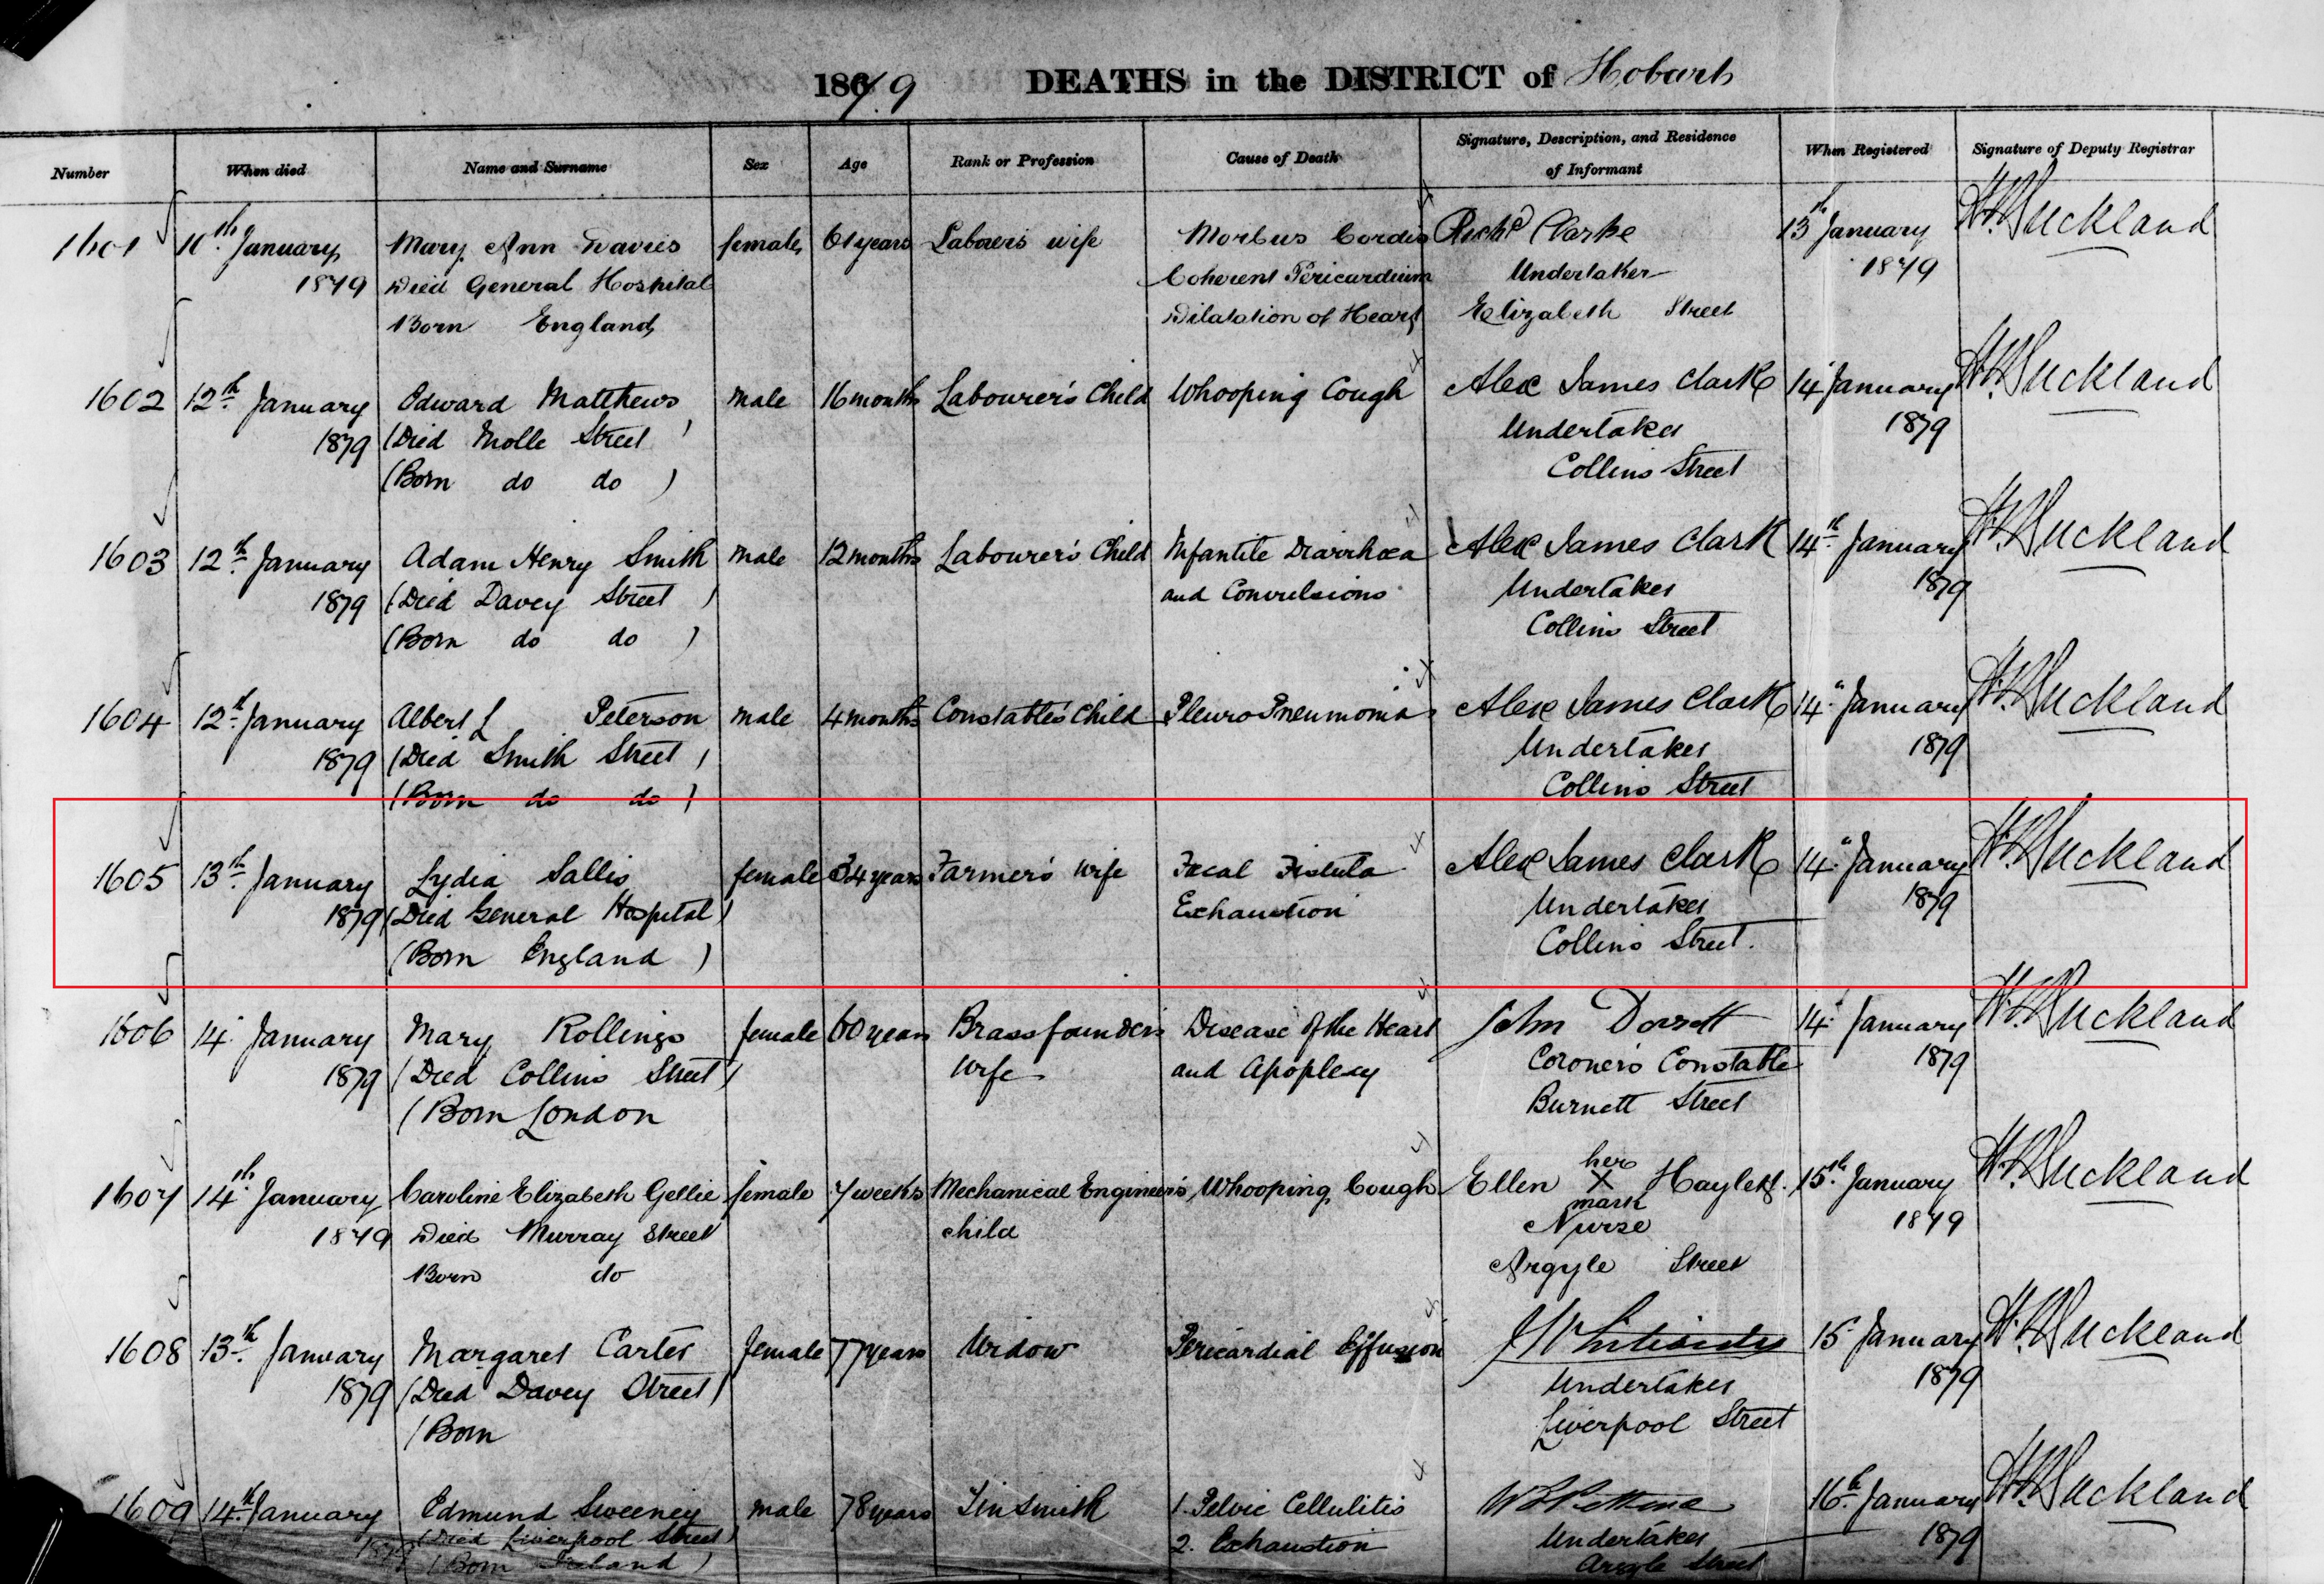 1879 DEATHS in the DISTRICT of Hobart
Number When died Name and Surname Sex Age Rank or Profession Cause of Death Signature, Description, and Residence of Informant When Registered Signature of Deputy Registrar
1601 10th January Mary Ann Davies female 61 years Laborer's wife Morbus Cordis Richd Clarke 13th January Buckland
1879 Died General Hospital Coherent Pericardium Undertaker 1879
Born England Dilatation of Heart Elizabeth Street
1602 12th January Edward Matthews male 16 months Labourer's Child Whooping Cough Alex James Clark 14 January Buckland
1879 (Died Molle Street) Undertaker 1879
(Born do do ) Collins Street
1603 12th January Adam Henry Smith male 12 months Labourer's Child Infantile Diarrhœa Alex James Clark 14th January Buckland
1879 (Died Davey Street ) and Convulsions Undertaker 1879
(Born do do ) Collins Street
1604 12th January Albert L Peterson male 4 months Constable's Child Pleuro Pneumonia Alex James Clark 14" January Buckland
1879 (Died Smith Street ) Undertaker 1879
(Born do do ) Collins Street
1605 13th January Lydia Sallis female 34 years Farmer's Wife Fæcal Fistula Alex James Clark 14" January Buckland
1879 (Died General Hospital) Exhaustion Undertaker 1879
(Born England ) Collins Street.
1606 14 January Mary Rollings female 60 years Brassfounder's Disease of the Heart John Dorsett 14 January Buckland
1879 (Died Collins Street) Wife and Apoplexy Coroner's Constable 1879
(Born London Burnett Street
1607 14th January Caroline Elizabeth Gellie female 7 weeks Mechanical Engineer's Whooping Cough Ellen her X mark Haylett. 15th January Buckland
1879 Died Murray Street child Nurse 1879
Born do Argyle Street
1608 13th January Margaret Carter female 77 years Widow Pericardial Effusion 15 January Buckland
1879 (Died Davey Street) Undertaker 1879
(Born Liverpool Street
1609 14th January Edmund Sweeney male 78 years Tinsmith 1. Pelvic Cellulitis 16th January Buckland
1879 (Died Liverpool Street) 2. Exhaustion Undertaker 1879
(Born Ireland ) Argyle Street